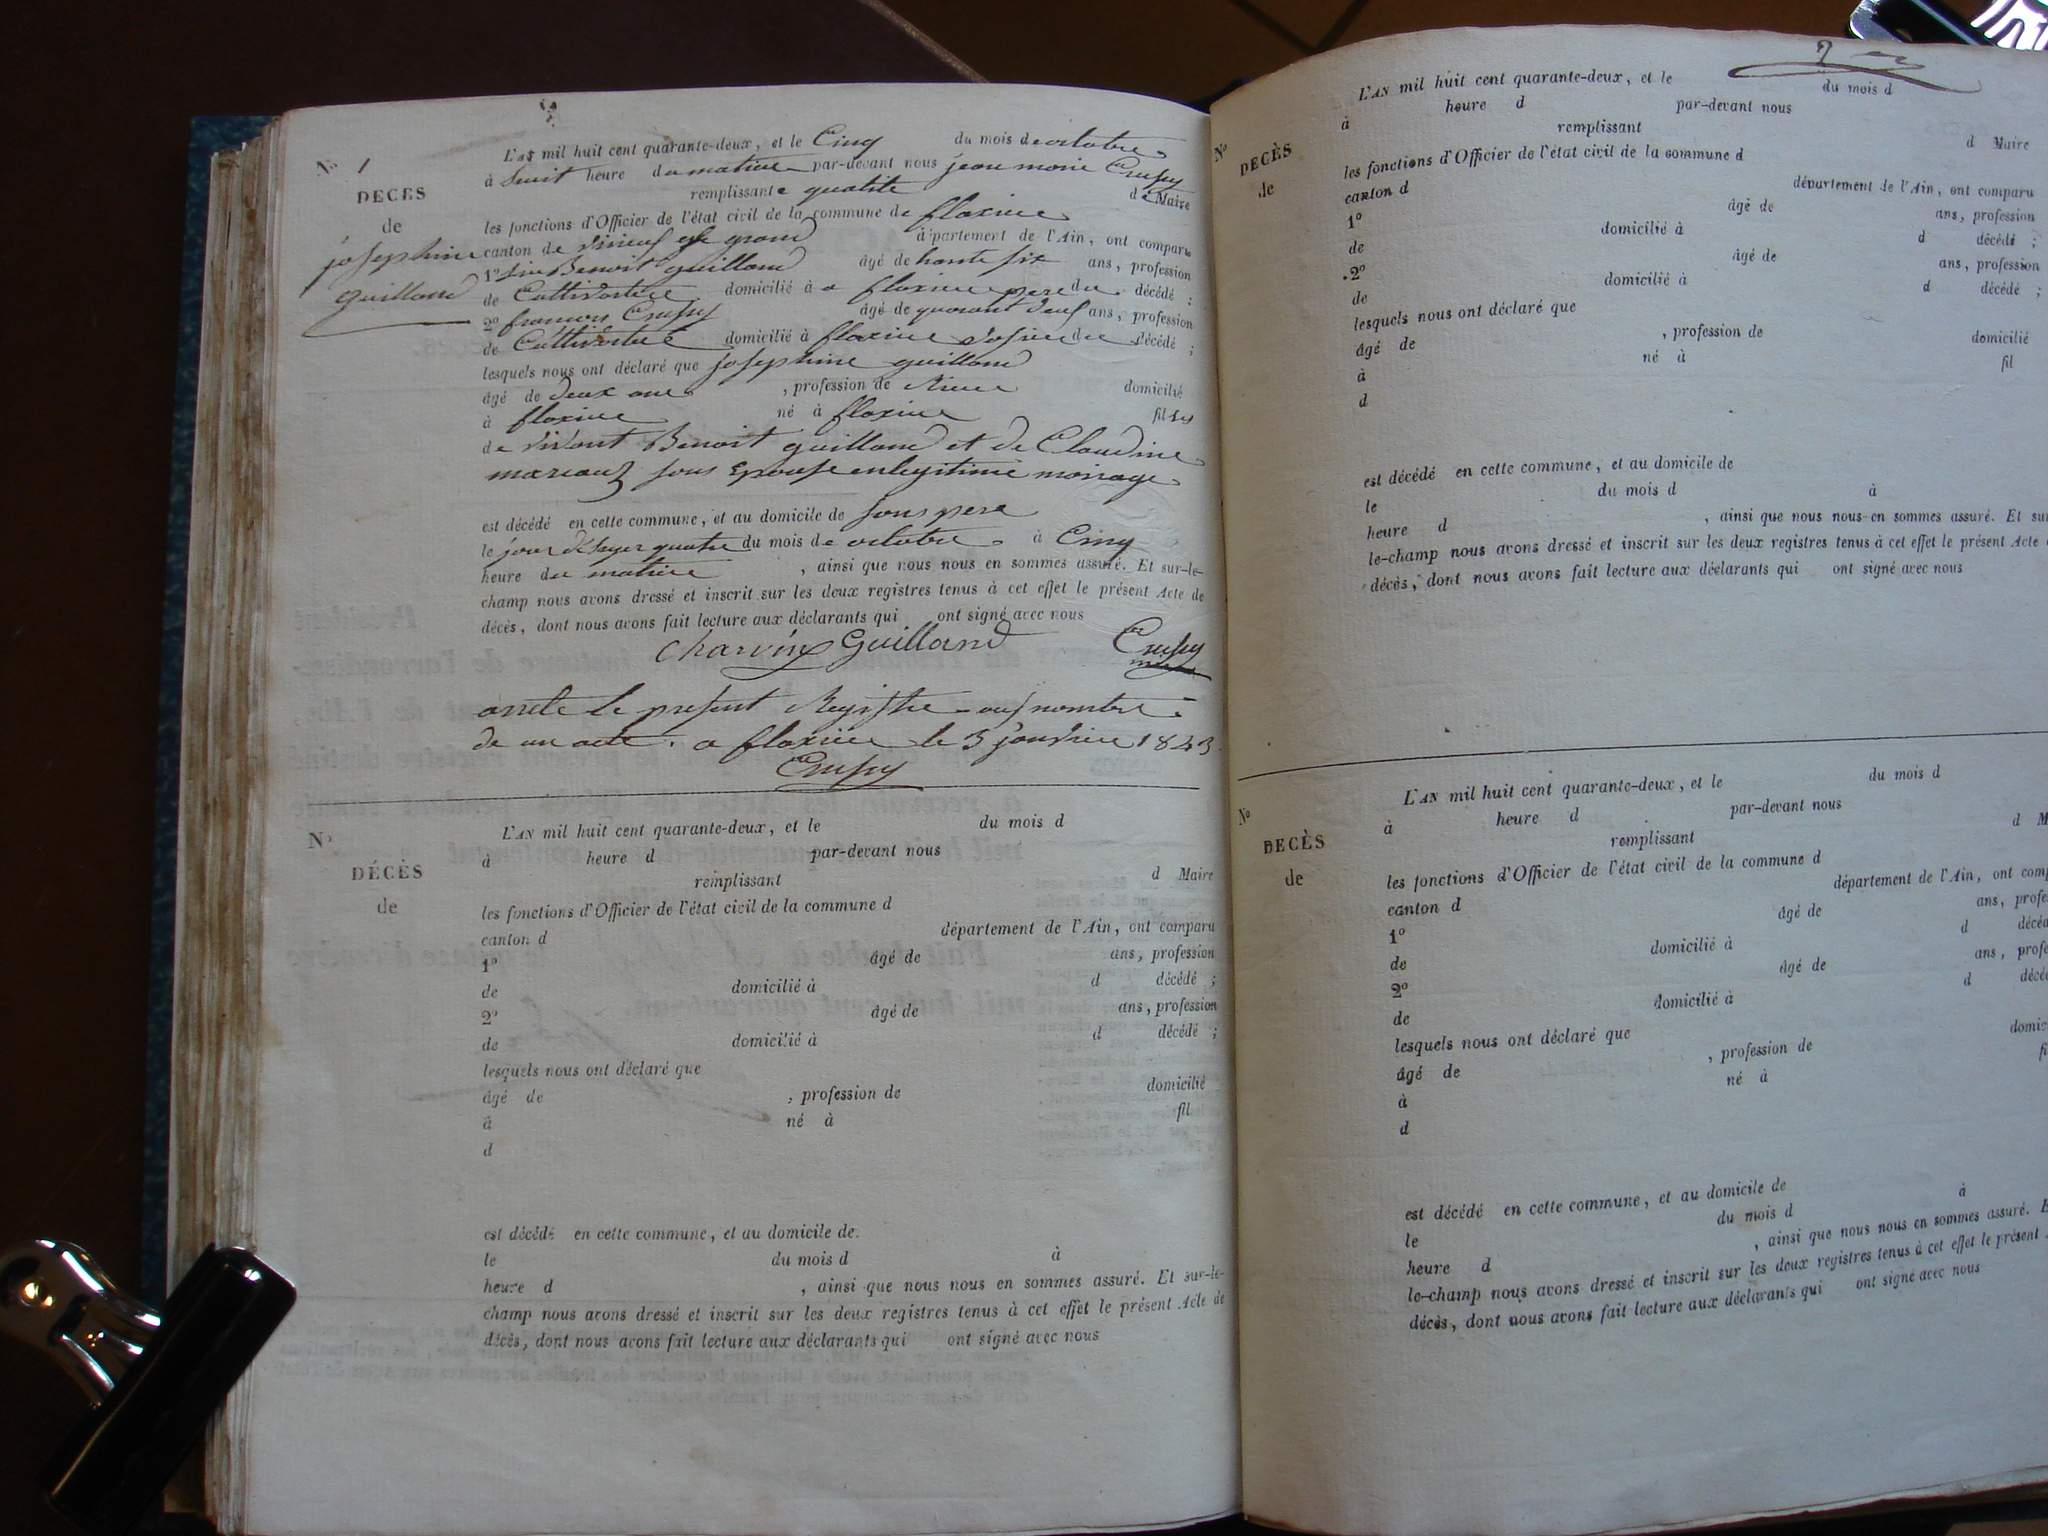 N.° 1
DECES
de
josephine
guilland
L'AN mil huit cent quarante-deux, et le Cinq du mois de octobre
à huit heure du matin par-devant nous jean marie Crussy
remplissant e qualite d e Maire
les fonctions d'Officier de l'état civil de la commune de flaxieu
canton de virieu le grand département de l'Ain, ont comparu
1° Benoit guilland âgé de trante six ans, profession
de Cultivateur domicilié à a flaxieu pere du décédé ;
2° francois Crussy âgé de quarant deux ans, profession
de Cultivateur domicilié à flaxieu voisin du décédé ;
lesquels nous ont déclaré que josephine guilland
âgé de deux ans , profession de Rien domicilié
à flaxieu né à flaxieu fil
de vivant Benoit guilland et de Claudine
sous Epouse en legitime mariage
est décédé en cette commune, et au domicile de sons pere
le jour d'hyer quatre du mois de octobre à Cinq
heure du matin , ainsi que nous nous en sommes assuré. Et sur-le-
champ nous avons dressé et inscrit sur les deux registres tenus à cet effet le présent Acte de
décès, dont nous avons fait lecture aux déclarants qui ont signé avec nous
Charvin Guilland Crussy
arrete le present Registre aus nombre
de un acte. a flaxieu le 3 janvier 1843
Crussy
N°
DÉCÈS
de
L'AN mil huit cent quarante-deux, et le du mois d
à heure d par-devant nous
remplissant d Maire
les fonctions d'Officier de l'état civil de la commune d
canton d département de l'Ain, ont comparu
1° âgé de ans, profession
de domicilié à d décédé ;
2° âgé de ans, profession
de domicilié à d décédé ;
lesquels nous ont déclaré que
âgé de , profession de domicilié
à né à fil
d
est décédé en cette commune, et au domicile de
le du mois d à
heure d , ainsi que nous nous en sommes assuré. Et sur-le-
champ nous avons dressé et inscrit sur les deux registres tenus à cet effet le présent Acte de
décès, dont nous avons fait lecture aux déclarants qui ont signé avec nous
N°
DECÈS
de
L'AN mil huit cent quarante-deux, et le du mois d
à heure d par-devant nous
remplissant d Maire
les fonctions d'Officier de l'état civil de la commune d
canton d département de l'Ain, ont comparu
1° âgé de ans, profession
de domicilié à d décédé ;
2° âgé de ans, profession
de domicilié à d décédé ;
lesquels nous ont déclaré que
âgé de , profession de domicilié
à né à fil
d
est décédé en cette commune, et au domicile de
le du mois d à
heure d , ainsi que nous nous en sommes assuré. Et sur
le-champ nous avons dressé et inscrit sur les deux registres tenus à cet effet le présent Acte
décès, dont nous avons fait lecture aux déclarants qui ont signé avec nous
N°
DECÈS
de
L'AN mil huit cent quarante-deux, et le du mois d
à heure d par-devant nous
remplissant d M
les fonctions d'Officier de l'état civil de la commune d
canton d département de l'Ain, ont comp
1° âgé de ans, profes
de domicilié à d décéd
2° âgé de ans, profe
de domicilié à d décé
lesquels nous ont déclaré que
âgé de , profession de domic
à né à fi
d
est décédé en cette commune, et au domicile de
le du mois d à
heure d , ainsi que nous nous en sommes assuré. E
le-champ nous avons dressé et inscrit sur les deux registres tenus à cet effet le présent
décès, dont nous avons fait lecture aux déclarants qui ont signé avec nous